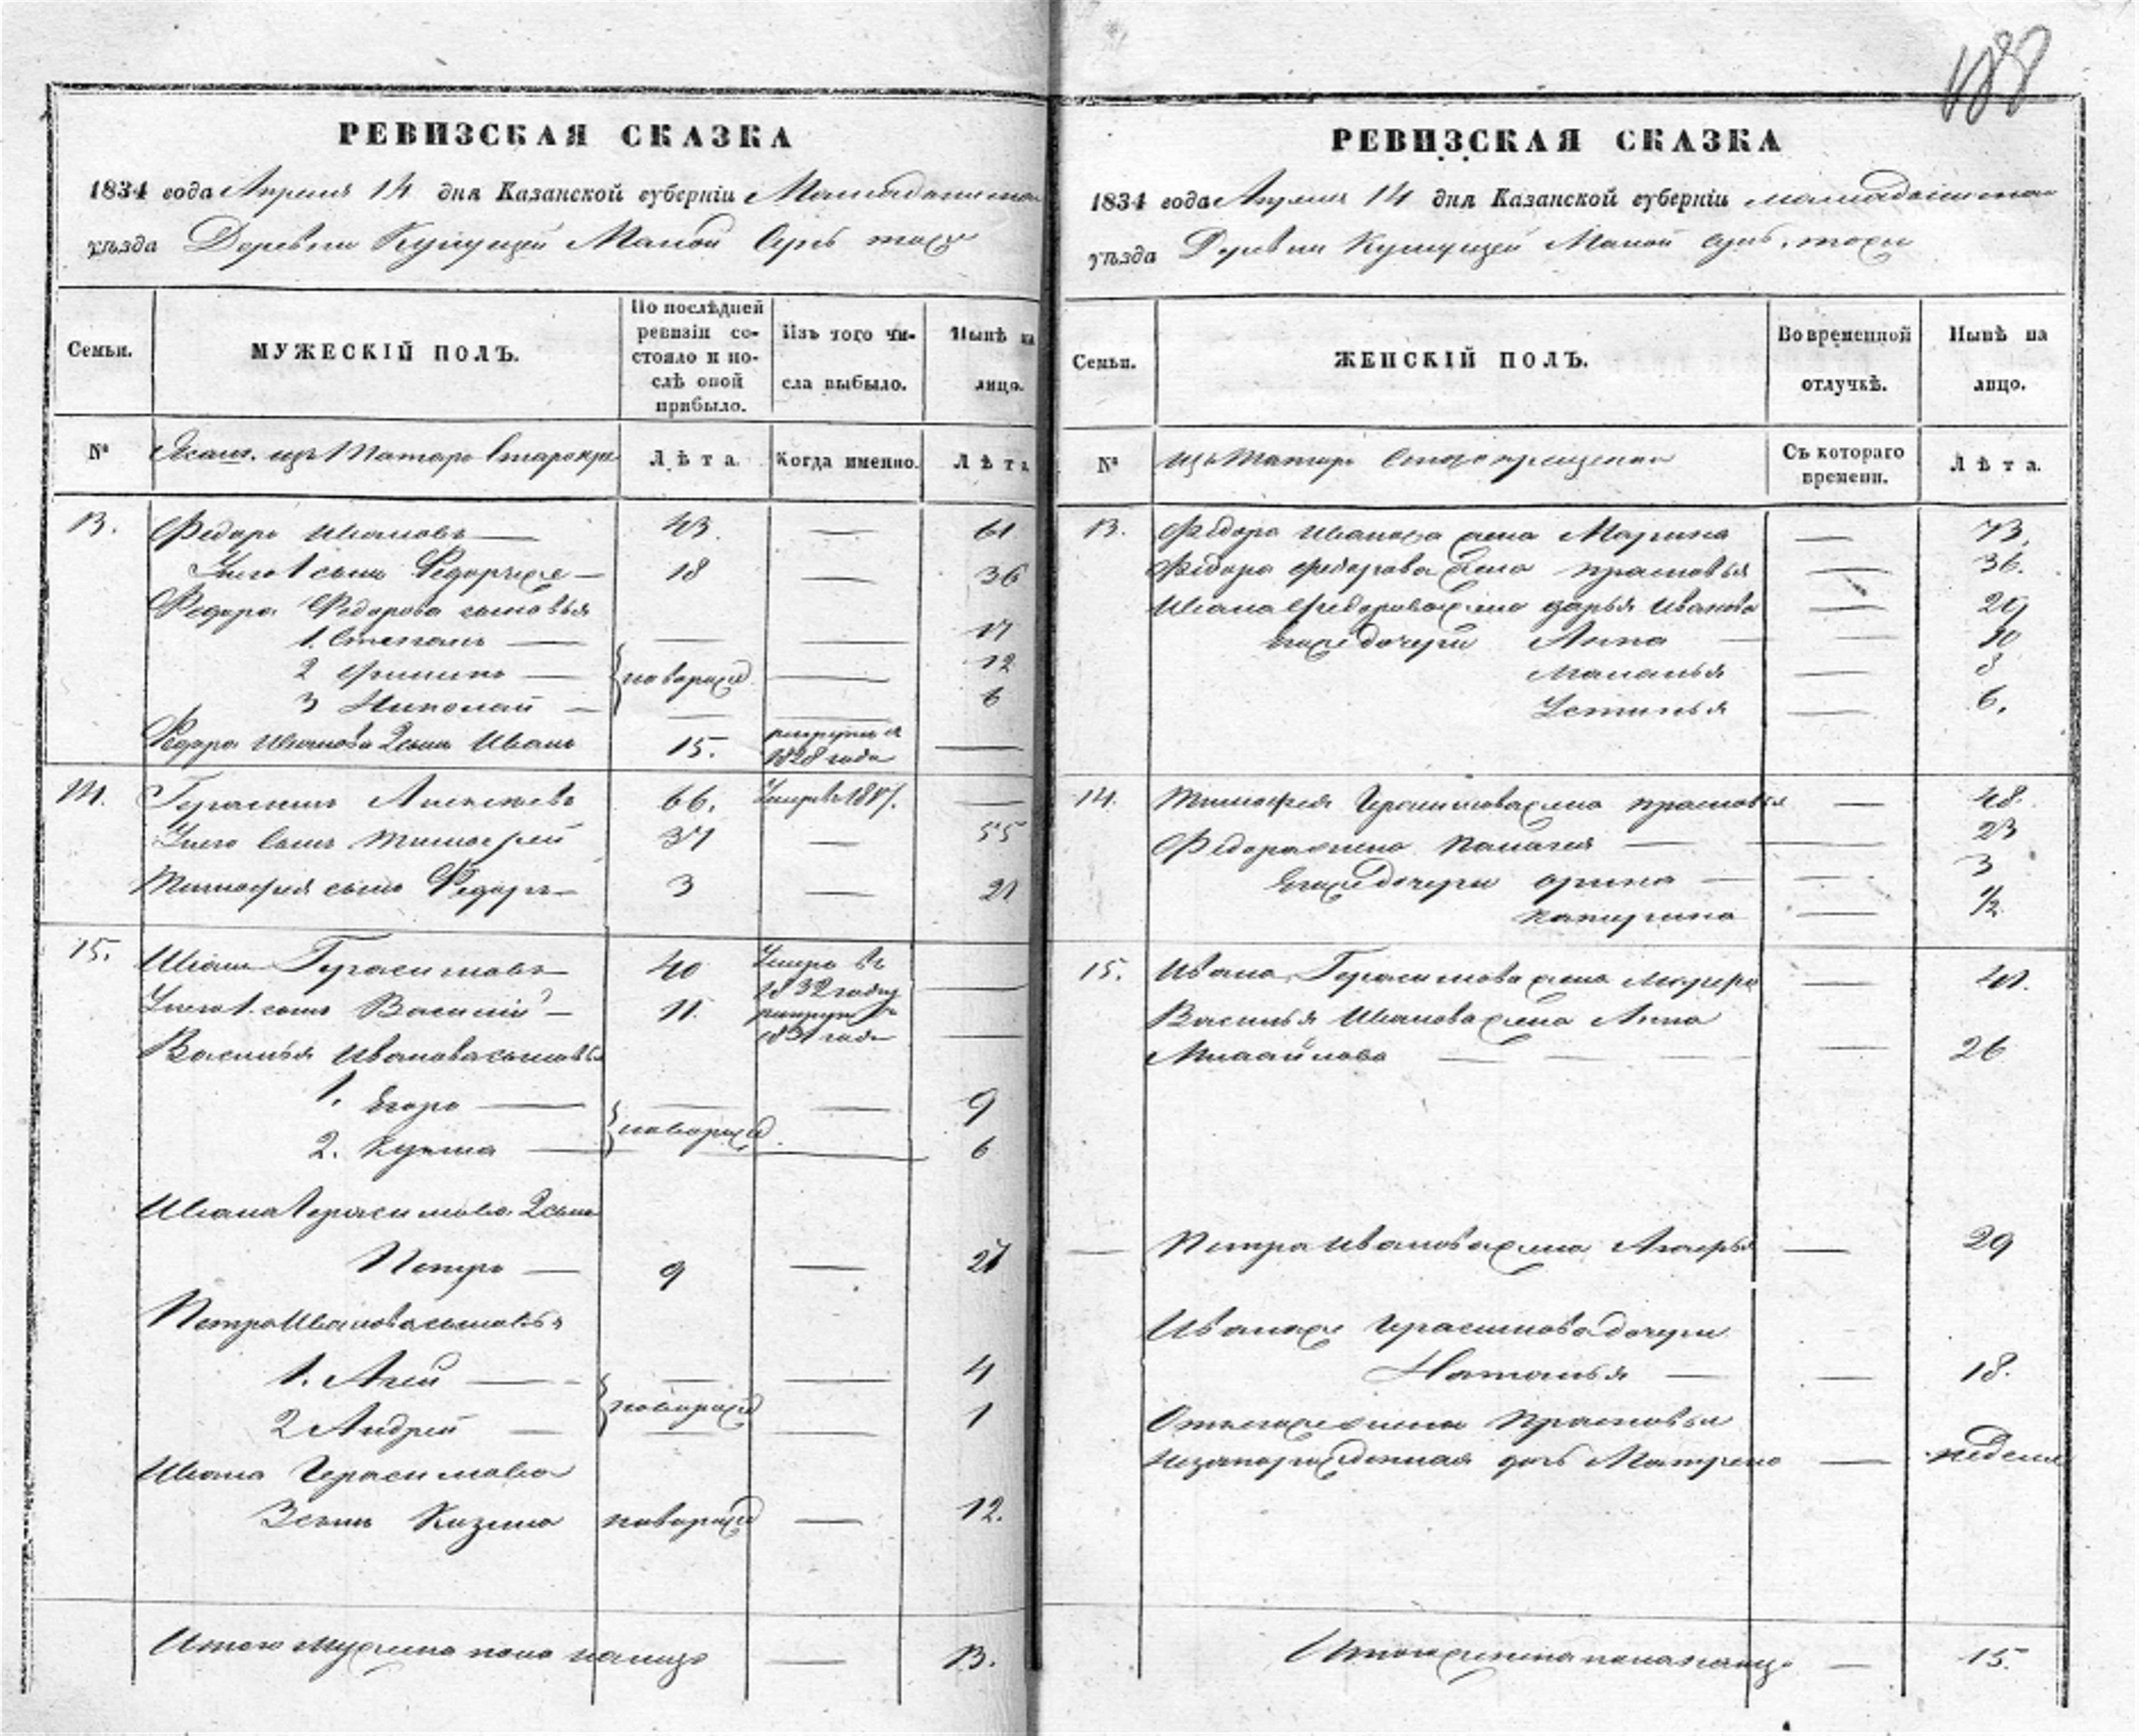 188
РЕВИЗСКАЯ СКАЗКА
1834 года Апреля 14 дня Казанской губерніи
уѣзда Деревни Малой тожъ
Семьи.
МУЖЕСКІЙ ПОЛЪ.
По послѣдней ревизіи состояло и послѣ оной прибыло.
Изъ того числа выбыло.
Нынѣ на лицо.
№
Ясаш. изъ Татаръ Старокре
Лѣта.
Когда именно.
Лѣта
13. Федоръ Ивановъ — 43. — 61
У него 1 сынъ — 18 — 36
Федора Федорова сыновья
1. Степанъ — — — 17
2 Филипъ — новорож — 12
3 Николай — — — 6
Федора Иванова 2 сынъ Иванъ 15. 1828 года —
14. Герасимъ Алексѣевъ 66. Умеръ 1817. —
У него сынъ Тимофей 37 — 55
Тимофея сынъ Федоръ — 3 — 21
15. Иванъ Герасимовъ — 40 Умеръ въ 1832 году —
У него 1. сынъ Василий — 11. рекрут 1831 года —
Василья Иванова сыновья
1. Егоръ — — — 9
2. Кузма — новорож — 6
Ивана Герасимова 2 сынъ
Петръ — 9 — 27
Петра Иванова сыновья
1. — — — 4
2 Андрей — новорож — 1
Ивана Герасимова
3 сынъ Козма новорож — 12.
Итого мужеска пола на лицо — 13.
РЕВИЗСКАЯ СКАЗКА
1834 года Апреля 14 дня Казанской губерніи
уѣзда Деревни Малой тожъ
Семьи.
ЖЕНСКІЙ ПОЛЪ.
Во временной отлучкѣ.
Нынѣ на лицо.
№
изъ Татаръ Старокрещенъ
Съ котораго времени.
Лѣта.
13. Федора Иванова жена Марина — 73.
Федора Федорова жена Прасковья — 36.
Ивана Федорова жена Дарья Иванова — 29
дочери Анна — — 10
Маланья — 8
Устинья — 6.
14. Тимофея Герасимова жена Прасковья — 48.
Федора жена Палагея — — 23
дочери Орина — — 3
Катерина — 1/2
15. Ивана Герасимова жена — 41.
Василья Иванова жена Анна
— — — — 26
— Петра Иванова жена — 29
Герасимова дочери
Наталья — — 18.
жена Прасковья
дочь Матрена — недели
Итого женска пола на лицо — 15.